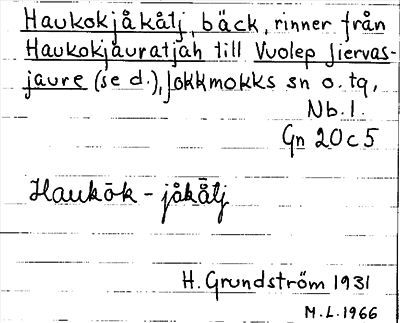 Haukokjåkåtj, bäck, rinner från
Haukokjauratjah till Vuolep Jiervas-
jaure (se d.), Jokkmokks sn o. tg,
Nb.l.
Gn 20c5
Haukōk - jåkåtj
H. Grundström 1931
M.L.1966